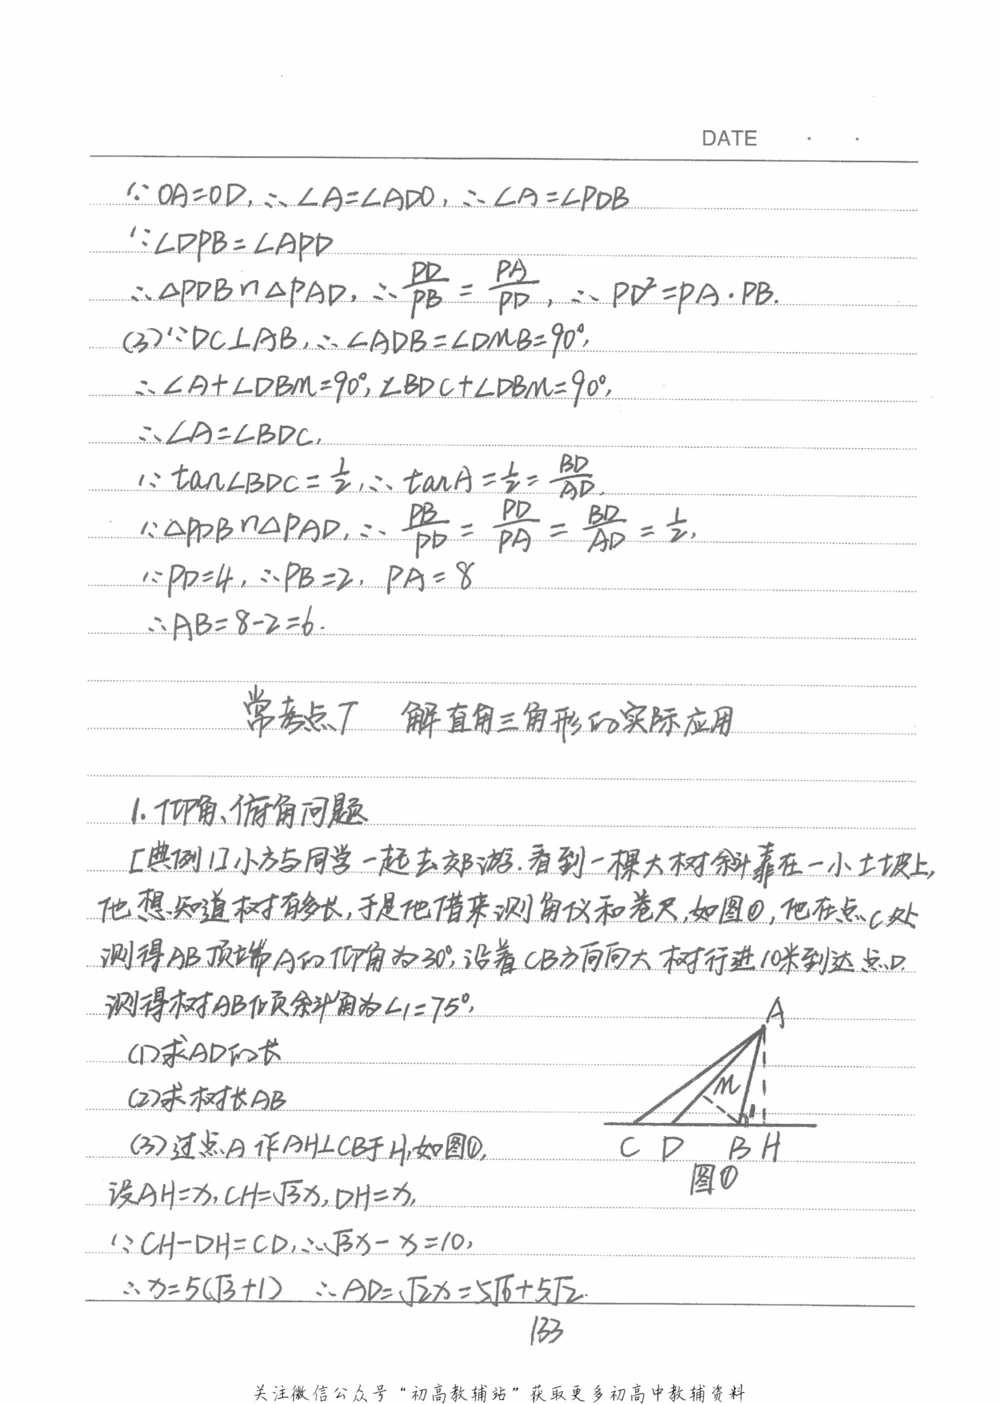 DATE · ·
∵OA=OD, ∴∠A=∠ADO, ∴∠A=∠PDB
∵∠DPB=∠APD
∴△PDB∽△PAD, ∴PD/PB=PA/PD, ∴PD²=PA·PB.
(3)∵DC⊥AB, ∴∠ADB=∠DMB=90°,
∴∠A+∠DBM=90°, ∠BDC+∠DBM=90°,
∴∠A=∠BDC,
∵tan∠BDC=1/2, ∴tanA=1/2=BD/AD.
∵△PDB∽△PAD, ∴PB/PD=PD/PA=BD/AD=1/2,
∵PD=4, ∴PB=2, PA=8
∴AB=8-2=6.
常考点T 解直角三角形的实际应用
1.仰角、俯角问题
[典例1]小方与同学一起去郊游.看到一棵大树斜靠在一小土坡上,
他想知道树有多长,于是他借来测角仪和卷尺,如图①,他在点C处
测得AB顶端A的仰角为30°,沿着CB方向向大树行进10米到达点D.
测得树AB倾斜角为∠1=75°,
(1)求AD的长
(2)求树长AB
(3)过点A作AH⊥CB于H,如图①,
设AH=x, CH=√3x, DH=x,
∵CH-DH=CD, ∴√3x-x=10,
∴x=5(√3+1) ∴AD=√2x=5√6+5√2.
A
M
1
C D B H
图①
133
关注微信公众号“初高教辅站”获取更多初高中教辅资料